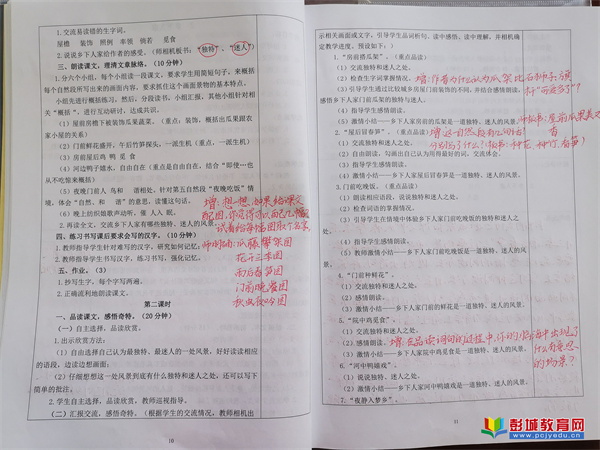 1.交流易读错的生字词。
屋檐 装饰 照例 率领 倘若 觅食
2.说说乡下人家给作者的感受。（师相机板书：“独特”、“迷人”）
三、朗读课文，理清文章脉络。（10分钟）
1.分六个小组，每个小组读一段课文，要求学生用简短句子，来概括每个自然段所写出来的画面内容，要求抓住这个画面景物的基本特点。
小组先进行概括练习。然后，分段读书，小组汇报，其他小组针对相关“概括”，进行互动研讨，达成共识。
（1）屋前房檐下被装饰瓜果蔬菜。（重点：装饰，概括出瓜果跟农家小屋的关系）
（2）门前鲜花盛开，午后竹笋探头。（重点，一派生机）
（3）房前屋后鸡 鸭 觅 食
（4）河边鸭子嬉水，自由自在（重点是自由自在，结合“即使…也从不吃惊来概括）
（5）夜晚门前人 鸟和 谐相处。针对第五自然段“夜晚吃饭”情境，体会“自然、和 谐”的意思，读懂这句话。
（6）晚上纺织娘歌声动听，催 人入 眠。
2.再读全文，交流乡下人家有哪些独特、迷人的风景。
四、练习书写课后要求会写的汉字。（10分钟）
1.教师指导学生针对难写的汉字，研究如何记忆。
2.教师指导学生书写汉字，练习书写，强化记忆。
五、作业。（3）
1.抄写生字，每个字写两遍。
2.正确流利地朗读课文。
增：想一想，如果给课文
试着给每幅图取个名字
瓜藤攀架图
花十三季图
雨后春笋图
门前晚餐图
秋虫夜吟图
第二课时
一、品读课文，感悟奇特。（20分钟）
（一）自主选择，品读欣赏。
1.出示欣赏方法：
（1）自由选择自己认为最独特、最迷人的一处风景，好好读读相应的语段，边读边想画面；
（2）仔细想想这一处风景到底有什么独特和迷人之处，还可以写下简单的批注。
2.学生自主选择，品读欣赏，教师巡视指导。
（二）汇报交流，感悟奇特。（根据学生的交流情况，教师相机出
10
示相关画面或文字，引导学生品词析句、读中感悟、读中理解，并相机确定教学进度。预设如下：）
1.“房前搭瓜架”。（重点品读）
（1）交流独特和迷人之处。
（2）检查生字词掌握情况。
（3）引导学生通过比较城乡房屋门前装饰的不同，并结合感情朗读，感悟乡下人家门前瓜架的独特与迷人。
（4）指导学生感情朗读。
（5）激情小结——乡下人家屋前的瓜架是一道独特、迷人的风景。
增：作者为什么认为瓜架比石狮子、旗杆“可爱多了”？
2.“屋后冒春笋”。（重点品读）
（1）交流独特和迷人之处。
（2）自由朗读，勾画出自己认为所用最好的词，交流体会。
（3）指导感情朗读。
（4）激情小结——乡下人家屋后冒春笋是一道独特、迷人的风景。
3.门前吃晚饭。（重点品读）
（1）朗读相应语段，说说独特和迷人之处。
（2）检查词语的掌握情况。
（3）引导学生在情境中体验乡下人家门前吃晚饭的独特和迷人之处。
（4）指导感情朗读。
（5）激情小结——乡下人家门前吃晚饭是一道独特、迷人的风景。
4.“门前种鲜花”。
（1）交流独特和迷人之处。
（2）感情朗读。
（3）激情小结——乡下人家门前的鲜花是一道独特、迷人的风景。
5.“院中鸡觅食”。
（1）交流独特和迷人之处。
（2）感情朗读。
（3）激情小结——乡下人家院中鸡觅食是一道独特、迷人的风景。
增：在品读词句的过程中，你的脑海中出现了什么有意思的场景？
6.“河中鸭嬉戏”。
（1）说说独特、迷人之处。
（2）激情小结——乡下人家河中鸭嬉戏是一道独特、迷人的风景。
7.“夜静入梦乡”。
11
彭城教育网
www.pcjyedu.cn